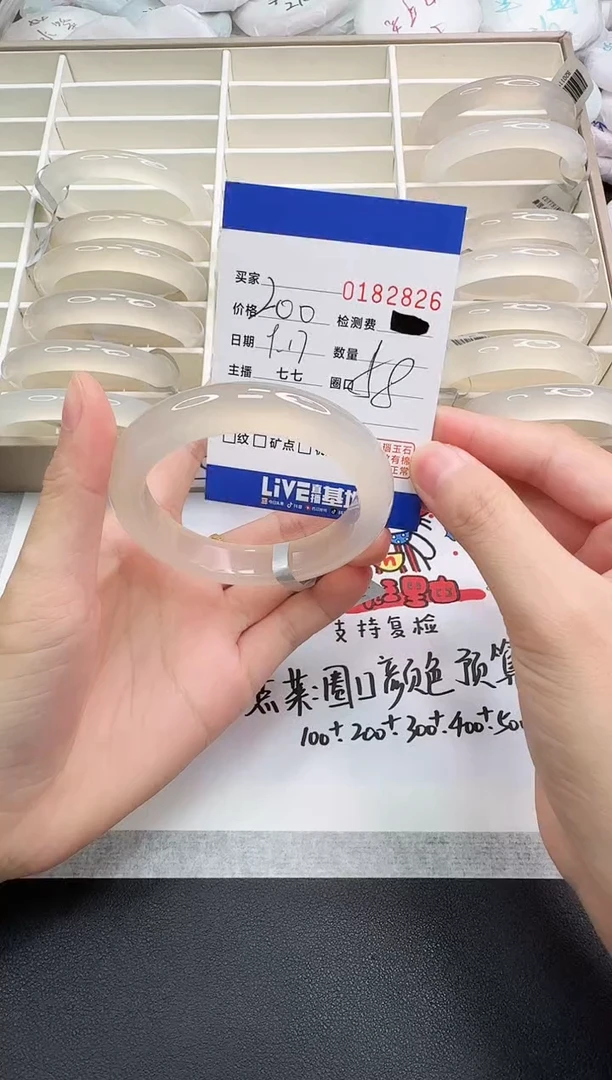 0182826
买家
价格 200 检测费
日期 1.17 数量
主播 七七 圈口 58
纹 矿点
玉石
有棉
正常
LiVE直播基地
支持复检
点菜:圈口颜色预算
100+.200+.300+.400+.500